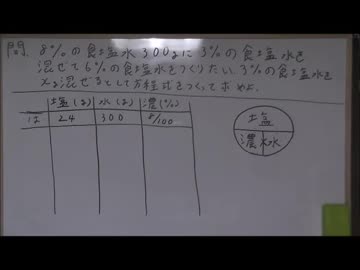 問 8%の食塩水300gに3%の食塩水を
混ぜて6%の食塩水をつくりたい.3%の食塩水を
xg混ぜるとして方程式をつくって求めよ.
塩(g) 水(g) 濃(%)
は 24 300 8/100
塩
濃 水